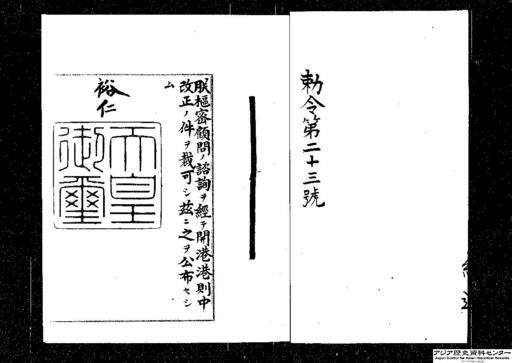 勅令第二十三號
朕樞密顧問ノ諮詢ヲ經テ開港港則中
改正ノ件ヲ裁可シ茲ニ之ヲ公布セシ
ム
裕仁
天皇
御璽
アジア歴史資料センター
Japan Center for Asian Historical Records